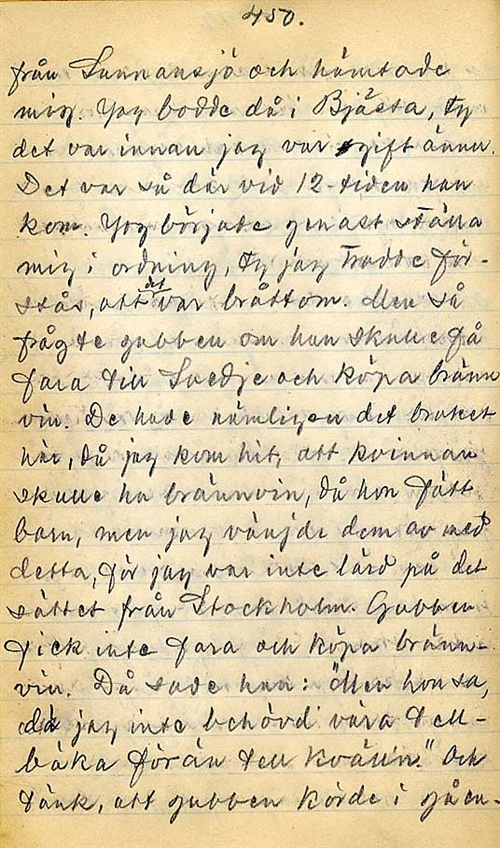 450.
från Sunnansjö och hämtade
mig. Jag bodde då i Bjästa, ty
det var innan jag var gift ännu.
Det var så där vid 12-tiden han
kom. Jag började genast ställa
mig i ordning, ty jag trodde för-
stås, att det var bråttom. Men så
frågte gubben om han skulle få
fara till Svedje och köpa bränn
vin. De hade nämligen det bruket
här, då jag kom hit, att kvinnan
skulle ha brännvin, då hon fått
barn, men jag vänjde dem av med
detta, för jag var inte lärd på det
sättet från Stockholm. Gubben
fick inte fara och köpa bränn-
vin. Då sade han: "Men hon sa,
då jag inte behövd vära tell-
bäka förän tell kvälln." Och
tänk, att gubben körde i gåen-